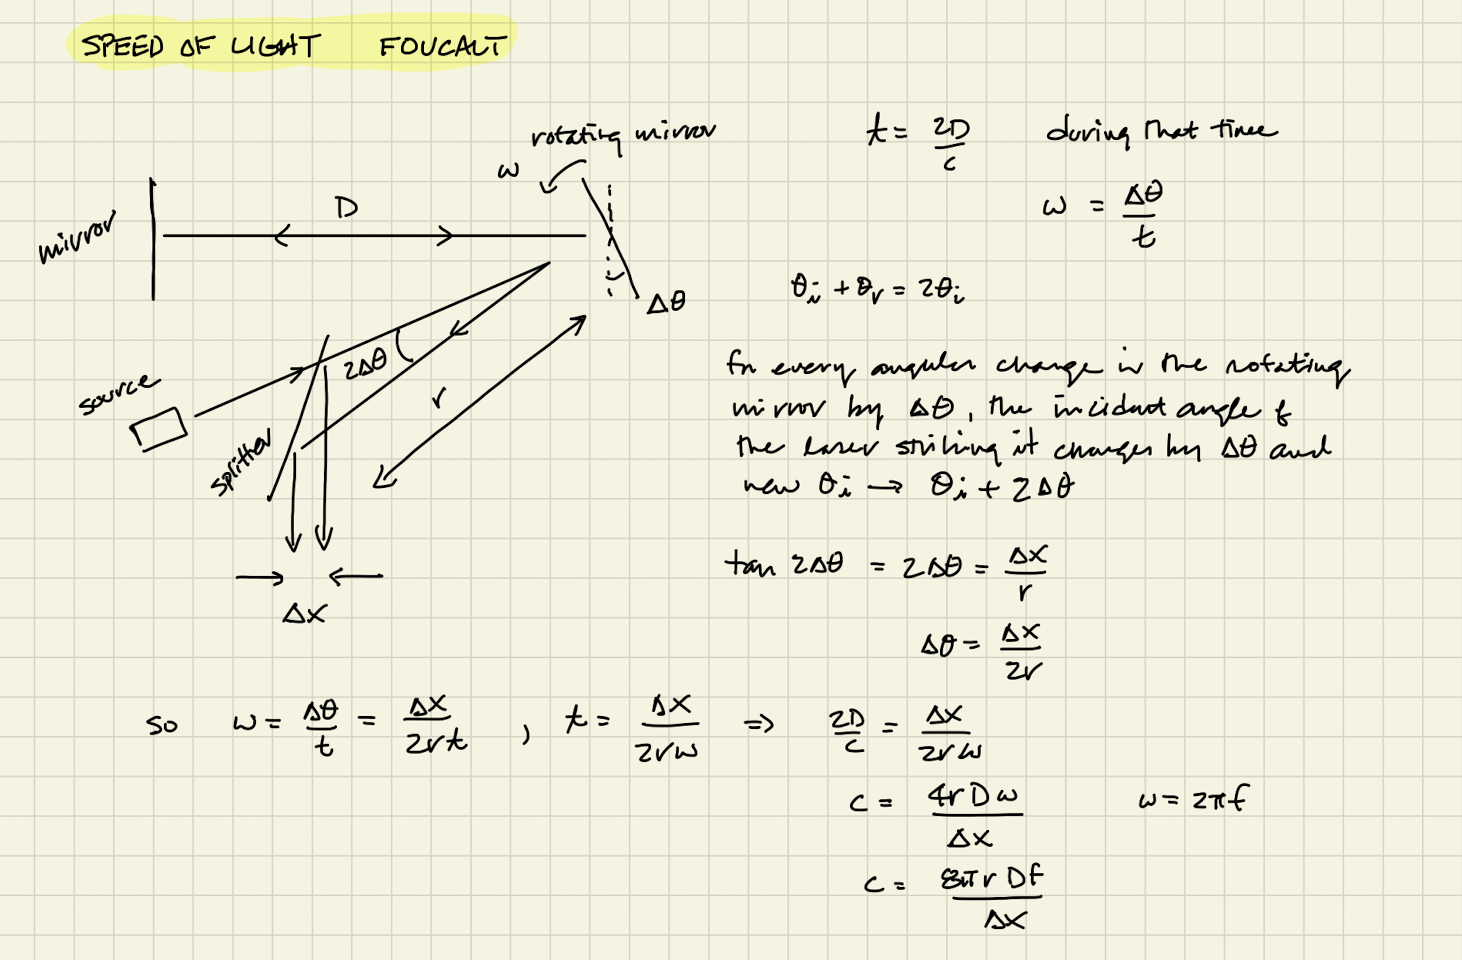 SPEED OF LIGHT FOUCALT
rotating mirror
ω
D
mirror
Δθ
source
2Δθ
r
splitter
Δx
t = 2D/c during that time
ω = Δθ/t
θi + θr = 2θi
for every angular change in the rotating
mirror by Δθ, the incident angle of
the laser striking it changes by Δθ and
new θi → θi + 2Δθ
tan 2Δθ = 2Δθ = Δx/r
Δθ = Δx/2r
so ω = Δθ/t = Δx/2rt , t = Δx/2rω ⇒ 2D/c = Δx/2rω
c = 4rDω/Δx ω = 2πf
c = 8πrDf/Δx